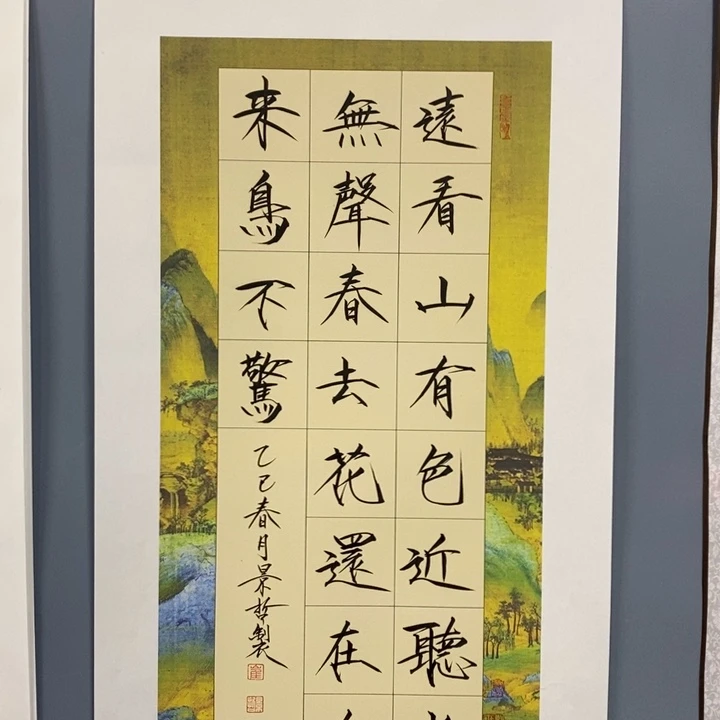 遠看山有色近聽
無聲春去花還在
来鳥不驚
乙巳春月景哲製